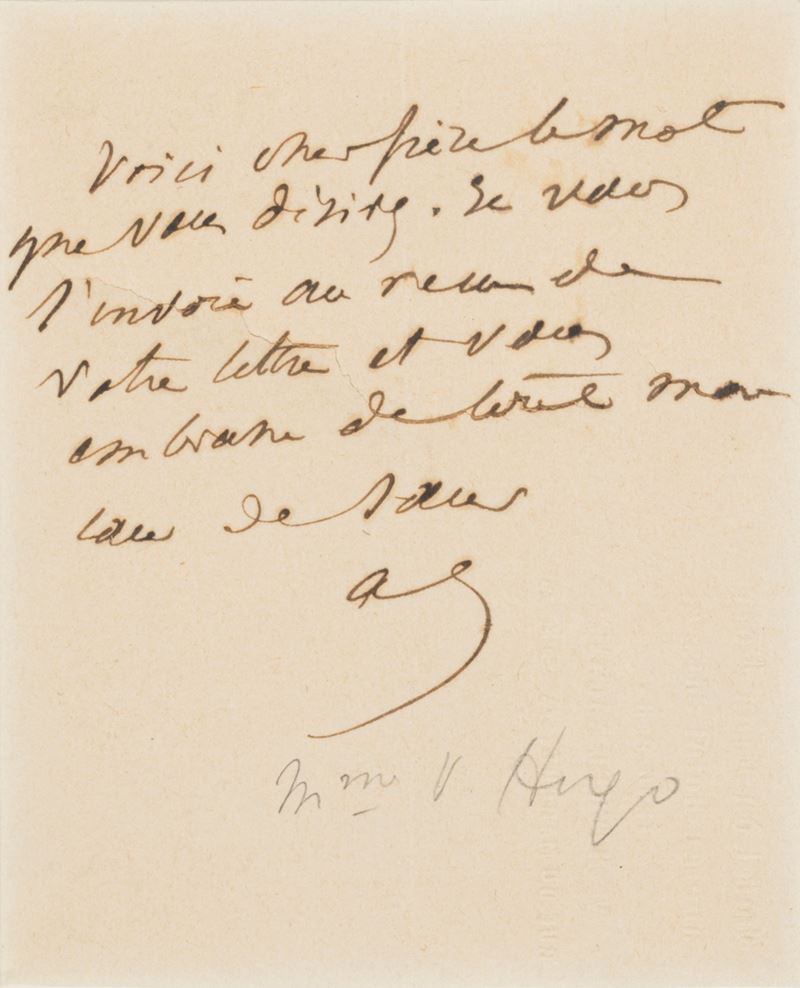 Voici cher frère le mot
que vous désirez. Je vous
l'envoie au reçu de
votre lettre et vous
embrasse de tout mon
cœur de sœur
Mme V Hugo